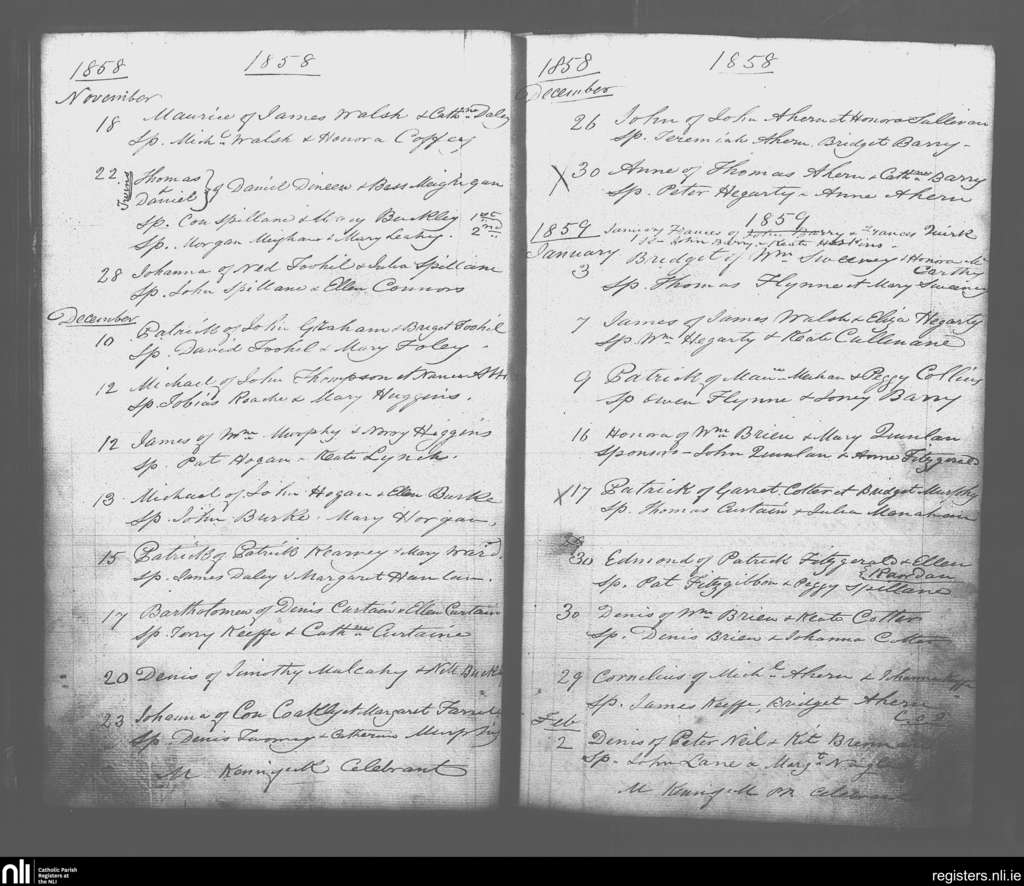 1858
1858
November
18 Maurice of James Walsh & Cathne Daley
Sp. Michl Walsh & Honora Coffey
22 Twins Thomas & Daniel } of Daniel Dineen & Bess Meighgan
Sp. Con Spillane & Mary Buckley 1st
Sp. Morgan Meighan & Mary Leahy. 2nd
28 Johanna of Ned Toohil & Julia Spillain
Sp. John Spillane & Ellen Connors
December
10 Patrick of John Graham & Briget Toohil
Sp. David Toohil & Mary Foley.
12 Michael of John Thompson et Nance
Sp. Tobias Roache & Mary Huggins.
12 James of Wm Murphy & Nory Higgins
Sp. Pat Hogan & Kate Lynch.
13 Michael of John Hogan & Ellen Burke
Sp. John Burke. Mary Horgan.
15 Patrick of Patrick Kearney & Mary Ward.
Sp. James Daley & Margaret Hanlan.
17 Bartholomew of Denis Curtain & Ellen Curtain
Sp. Tony Keeffe & Cathne Curtaine
20 Denis of Timothy Malcahy & Nell
23 Johanna of Con Coakley et Margaret
Sp. Denis & Catherine Murphy
M Celebrant
1858
1858
December
26 John of John Ahern et Honora Sullivan
Sp. Jeremiah Ahern, Bridget Barry -
X 30 Anne of Thomas Ahern & Cathne Barry
Sp. Peter Hegarty & Anne Ahern
1859
1859
January Frances of John Barry & Frances Quirk
Sp. John Barry & Kate
January
3 Bridget of Wm Sweeney & Honora Mc
Carthy
Sp. Thomas Flynne et Mary Sweeney
7 James of James Walsh & Eliza Hegarty
Sp. Wm Hegarty & Kate Cullenane
9 Patrick of Mau- Mehan & Peggy Collins
Sp Owen Flynne & Barry
16 Honora of Wm Brien & Mary Quinlan
Sponsors - John Quinlan & Anne Fitzgerald
X 17 Patrick of Garret Cotter et Bridget Murphy
Sp. Thomas Curtain & Julia Menahan
30 Edmond of Patrick Fitzgerald & Ellen
Sp. Pat Fitzgibbon & Peggy Spillane
30 Denis of Wm Brien & Kate Cotter
Sp. Denis Brien & Johanna Cotter
29 Cornelius of Michl Ahern & Johanna
Sp. James Keeffe, Bridget Ahern
Feb
2 Denis of Peter Neil & Kit Brennan
Sp. John Lane & Margt
M PP.
nli
Catholic Parish
Registers at
the NLI
registers.nli.ie